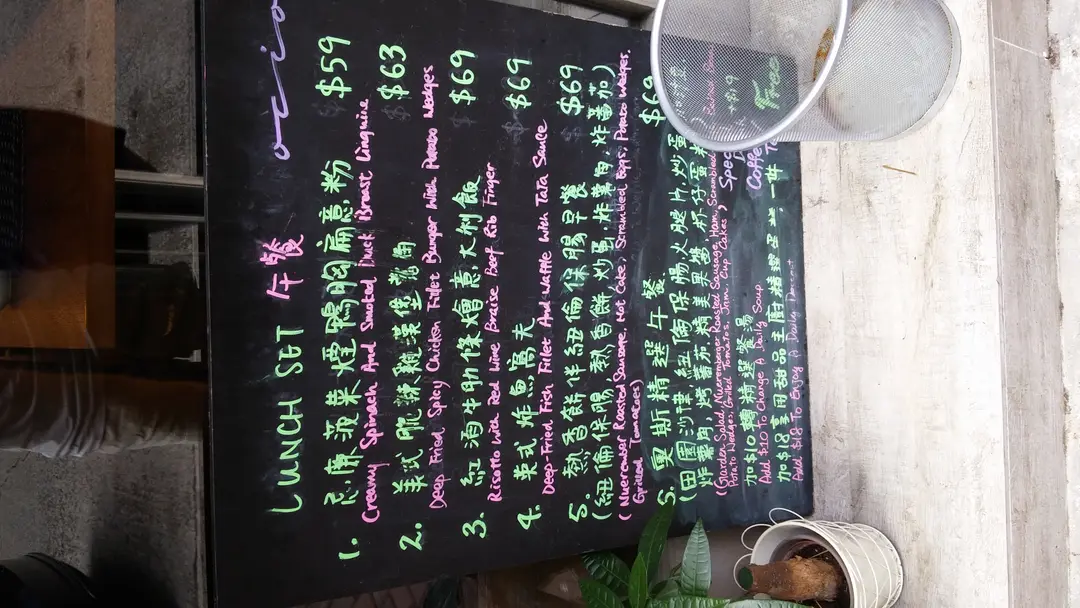 ozio
LUNCH SET 午餐
1. 忌廉菠菜煙鴨胸扁意粉 $59
Creamy Spinach And Smoked Duck Breast Linguine
2. 美式脆辣雞漢堡 $63
Deep Fried Spicy Chicken Fillet Burger With Potato Wedges
3. 紅酒牛肋條燴意大利飯 $69
Risotto With Red Wine Braise Beef Rib Finger
4. 英式炸魚窩夫 $69
Deep-Fried Fish Fillet And Waffle With Tata Sauce
5. 熱香餅伴紐倫保腸早餐 $69
(紐倫保腸,熱香餅,炒蛋,炸薯角,炸蕃茄)
(Nueremberg Roasted Sausage, Hot Cake, Scrambled Eggs, Potato Wedges,
Grilled Tomatoes)
5. 奧斯精選午餐 $69
(田園沙律,紐倫保腸,火腿片,炒蛋
炸薯角,烤蕃茄,精美果醬,杯仔蛋糕
(Garden Salad, Nueremberger Roasted Sausage, Ham, Scrambled
Potato Wedges, Grilled Tomatoes, Jam, Cup Cakes)
加$10轉精選餐湯
Add $10 To Change A Daily Soup
加$18享用甜品主廚精選 一件
Add $18 To Enjoy A Daily Dessert
Free